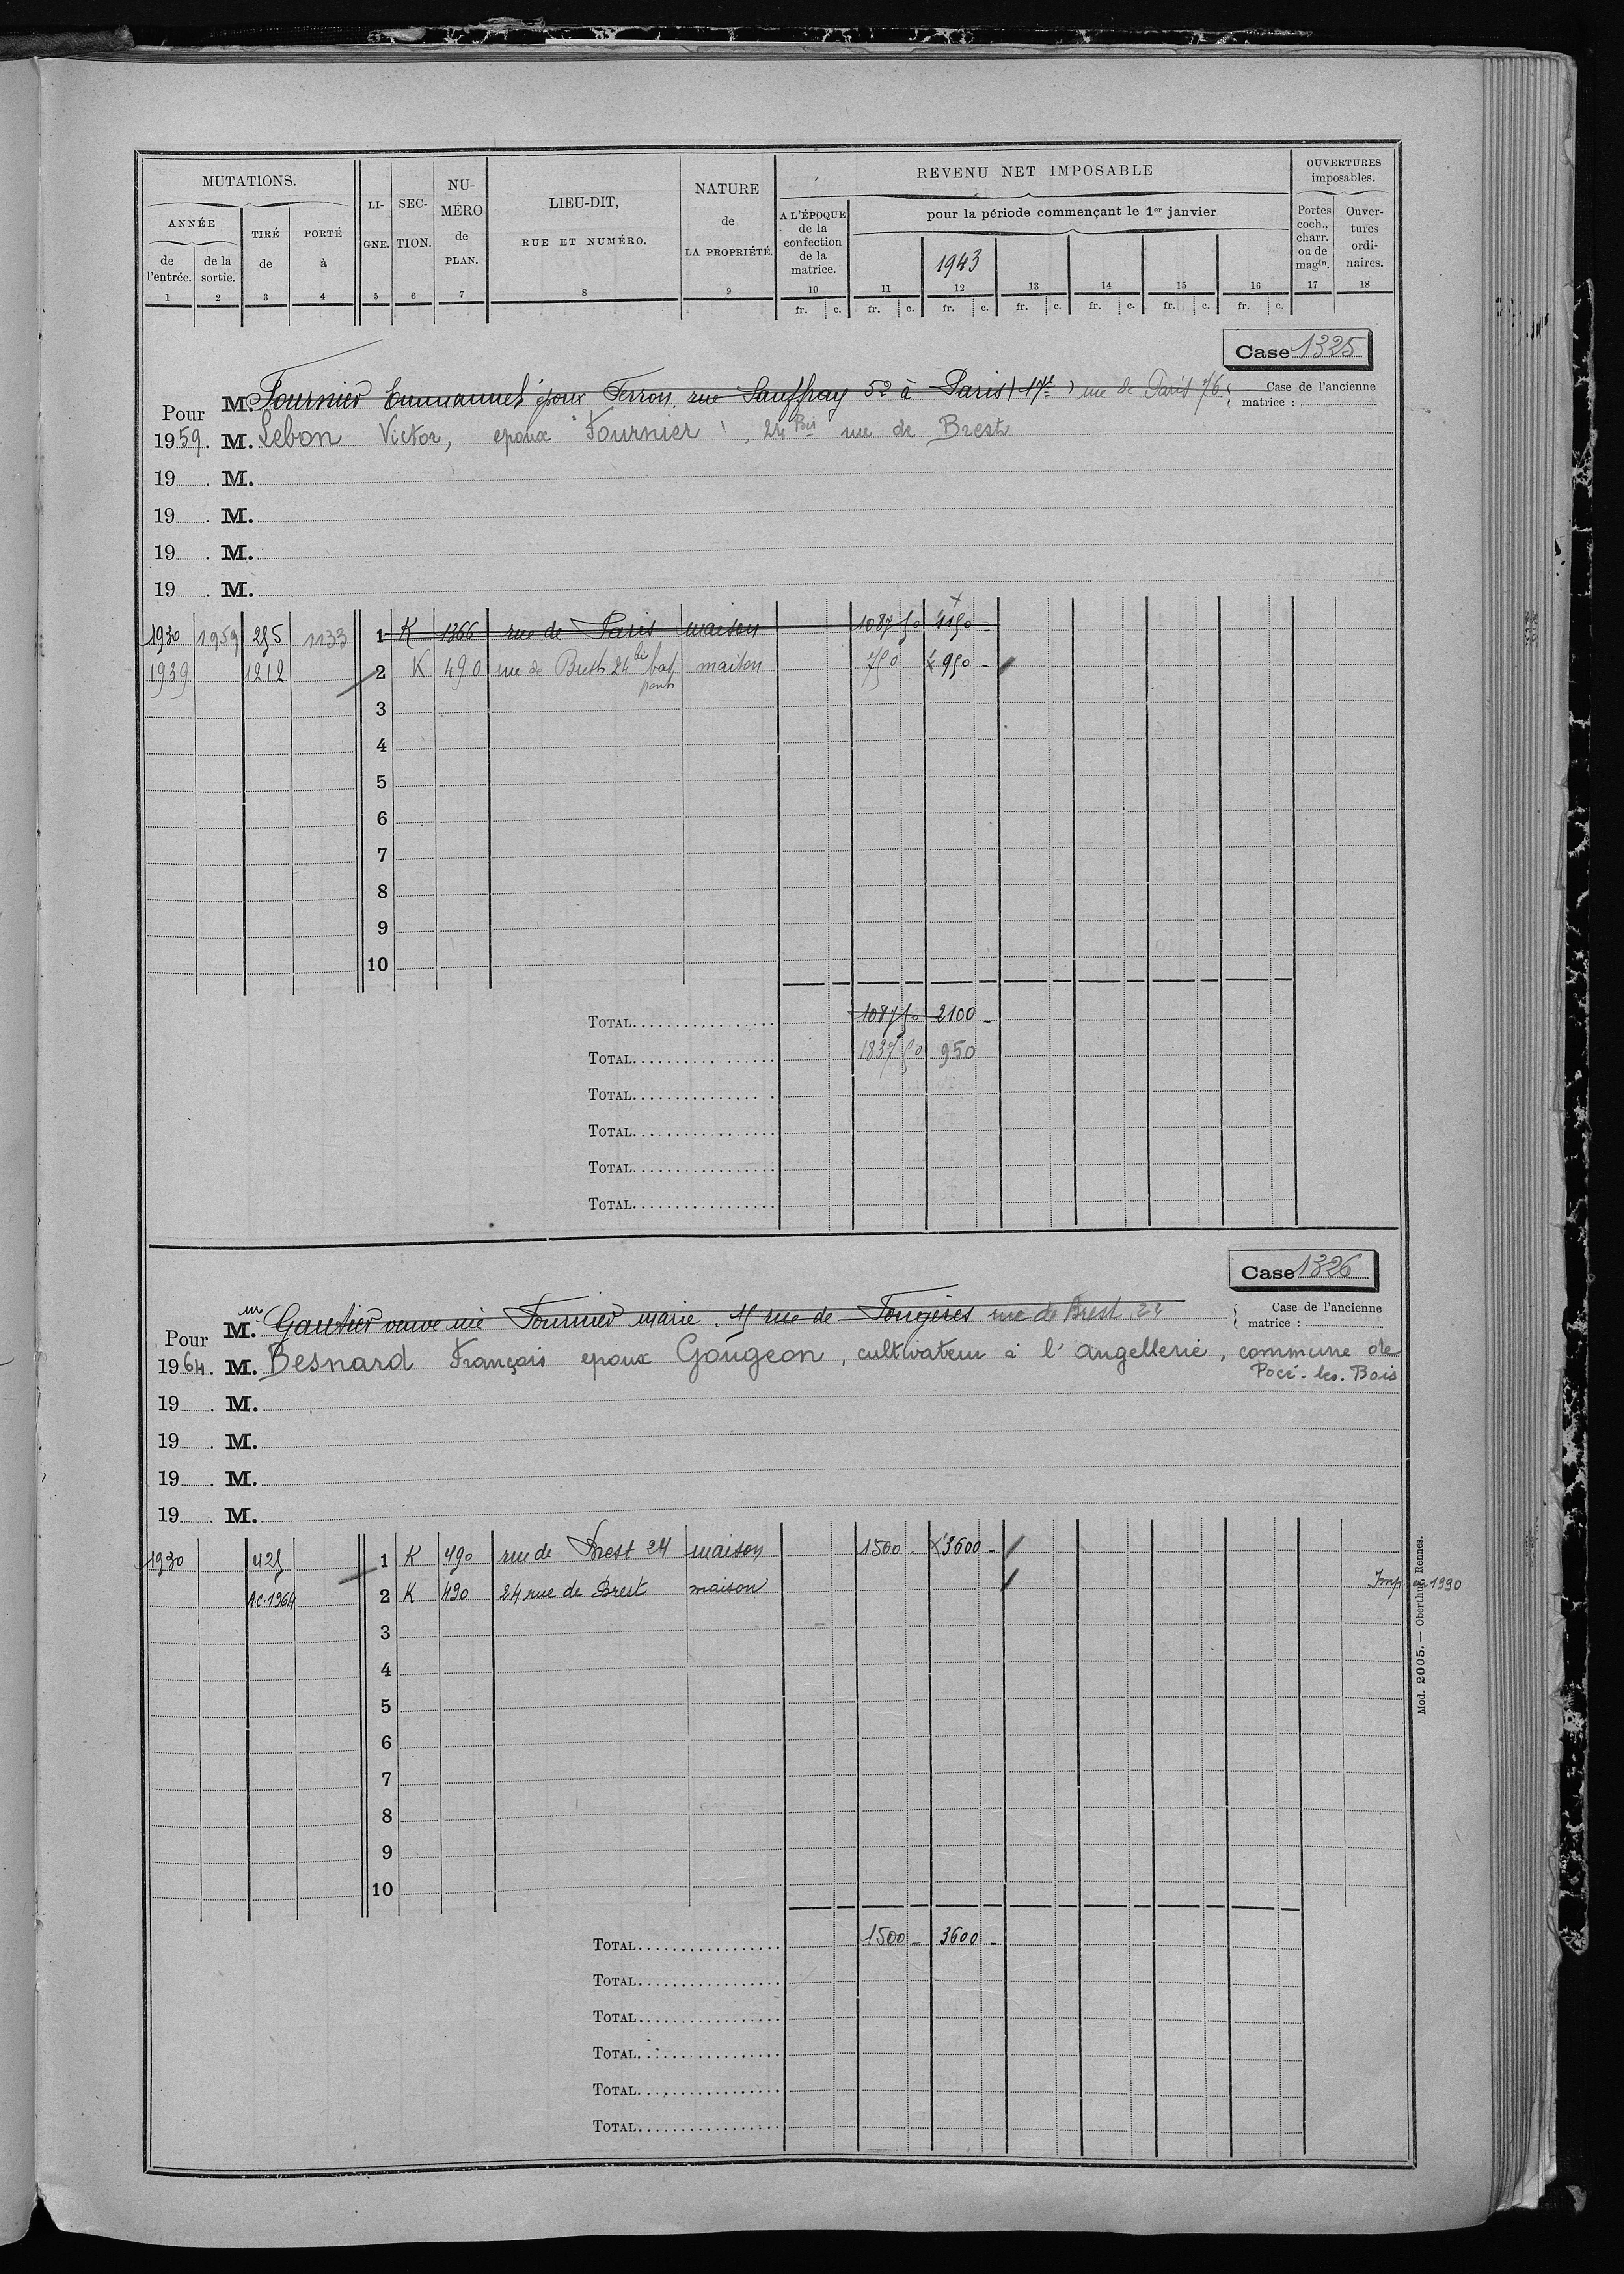 MUTATIONS.
ANNÉE
de l'entrée.
de la sortie.
TIRÉ de
PORTÉ à
LI-GNE.
SEC-TION.
NU-MÉRO de PLAN.
LIEU-DIT,
RUE ET NUMÉRO.
NATURE
de
LA PROPRIÉTÉ.
REVENU NET IMPOSABLE
A L'ÉPOQUE
de la
confection
de la
matrice.
pour la période commençant le 1er janvier
1943
OUVERTURES
imposables.
Portes coch., charr. ou de magin.
Ouver-tures ordi-naires.
1 2 3 4 5 6 7 8 9 10 11 12 13 14 15 16 17 18
fr. c. fr. c. fr. c. fr. c. fr. c. fr. c. fr. c.
Case 1325
Pour M. Fournier Emmanuel époux Ferron, rue Sauffray 52 à Paris (17e) rue de Paris 76
Case de l'ancienne
matrice :
1959. M. Lebon Victor, epoux Fournier, 24 Bis rue de Brest
19 . M.
19 . M.
19 . M.
19 . M.
1930 1959 285 1133 1 K 1366 rue de Paris maison 1087 50 x 1150 -
1939 1212 2 K 490 rue de Brest 24 bis maison 750 x 950 -
3
4
5
6
7
8
9
10
TOTAL 1087 50 2100 -
TOTAL 1837 50 950
TOTAL
TOTAL
TOTAL
TOTAL
Case 1326
Pour M. Gautier veuve née Fournier Marie. rue de Fougères rue de Brest 24
Case de l'ancienne
matrice :
1964. M. Besnard François epoux Gougeon, cultivateur à l'angellerie, commune de
Pocé-les-Bois
19 . M.
19 . M.
19 . M.
19 . M.
1930 425 1 K 490 rue de Brest 24 maison 1500 - x 3600 -
R.C. 1964 2 K 490 24 rue de Brest maison Imp en 1990
3
4
5
6
7
8
9
10
TOTAL 1500 - 3600 -
TOTAL
TOTAL
TOTAL
TOTAL
TOTAL
Mod. 2005. — Oberthur, Rennes.